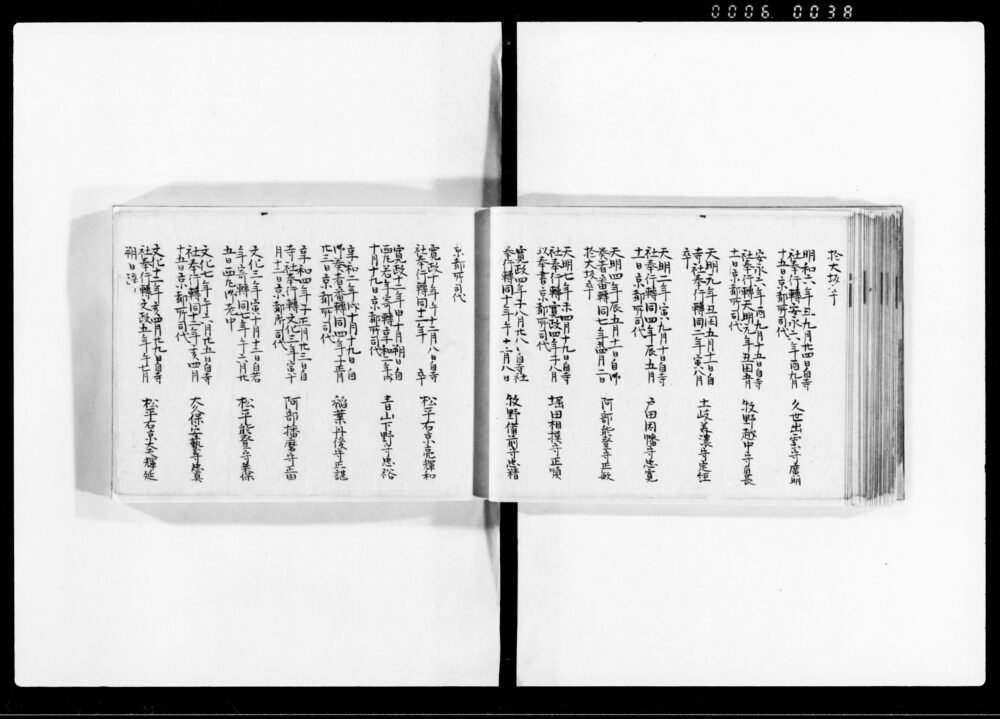 0006 0038
於大坂卒
明和六年丑九月廿四日自寺
社奉行轉安永六年酉九月
十五日京都所司代
久世出雲守廣明
安永六年酉九月十五日自寺
社奉行轉天明元年丑閏五月
十一日京都所司代
牧野越中守貞長
天明元年丑閏五月十一日自
寺社奉行轉同二年寅八月
卒
土岐美濃守定經
天明二年寅九月十日自寺
社奉行轉同四年辰五月
十一日京都所司代
戸田因幡守忠寛
天明四年辰五月十一日自御
奏者番轉同七年未四月二日
於大坂卒
阿部能登守正敏
天明七年未四月十九日自寺
社奉行轉寛政四年子八月
以奉書京都所司代
堀田相模守正順
寛政四年子八月廿八日自寺社
奉行轉同十年午十二月八日
牧野備前守忠精
京都所司代
寛政十年午十二月八日自寺
社奉行轉同十二年 卒
松平右京亮輝和
寛政十二年申十月朔日自
西丸若年寄轉享和二年戌
十月十九日京都所司代
青山下野守忠裕
享和二年戌十月十九日自
御奏者番轉同四年子正月
廿三日京都所司代
稲葉丹後守正諶
享和四年子正月廿三日自
寺社奉行轉文化三年寅十
月十二日京都所司代
阿部播磨守正由
文化三年寅十月十二日自若
年寄轉同七年午六月廿
五日西丸御老中
松平能登守乗保
文化七年午六月廿五日自寺
社奉行轉同十二年亥四月
十五日京都所司代
大久保安藝守忠真
文化十二年亥四月廿九日自寺
社奉行轉文政五年午七月
朔日
松平右京大夫輝延